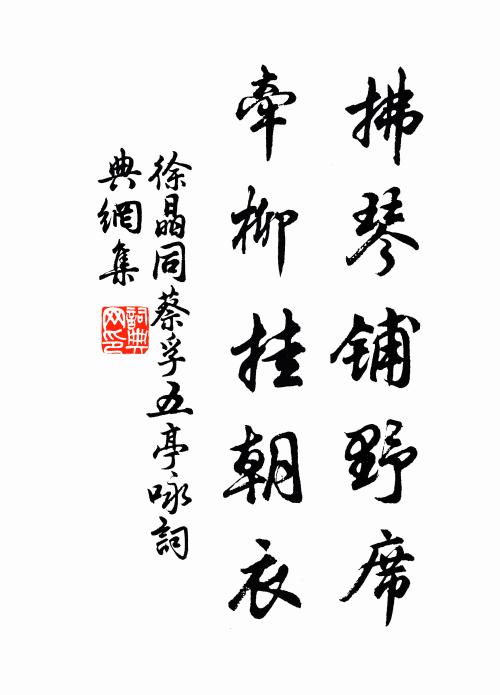 拂琴鋪野席
牽柳挂朝衣
徐晶同蔡孚五亭咏詞
典網集
詞典网印